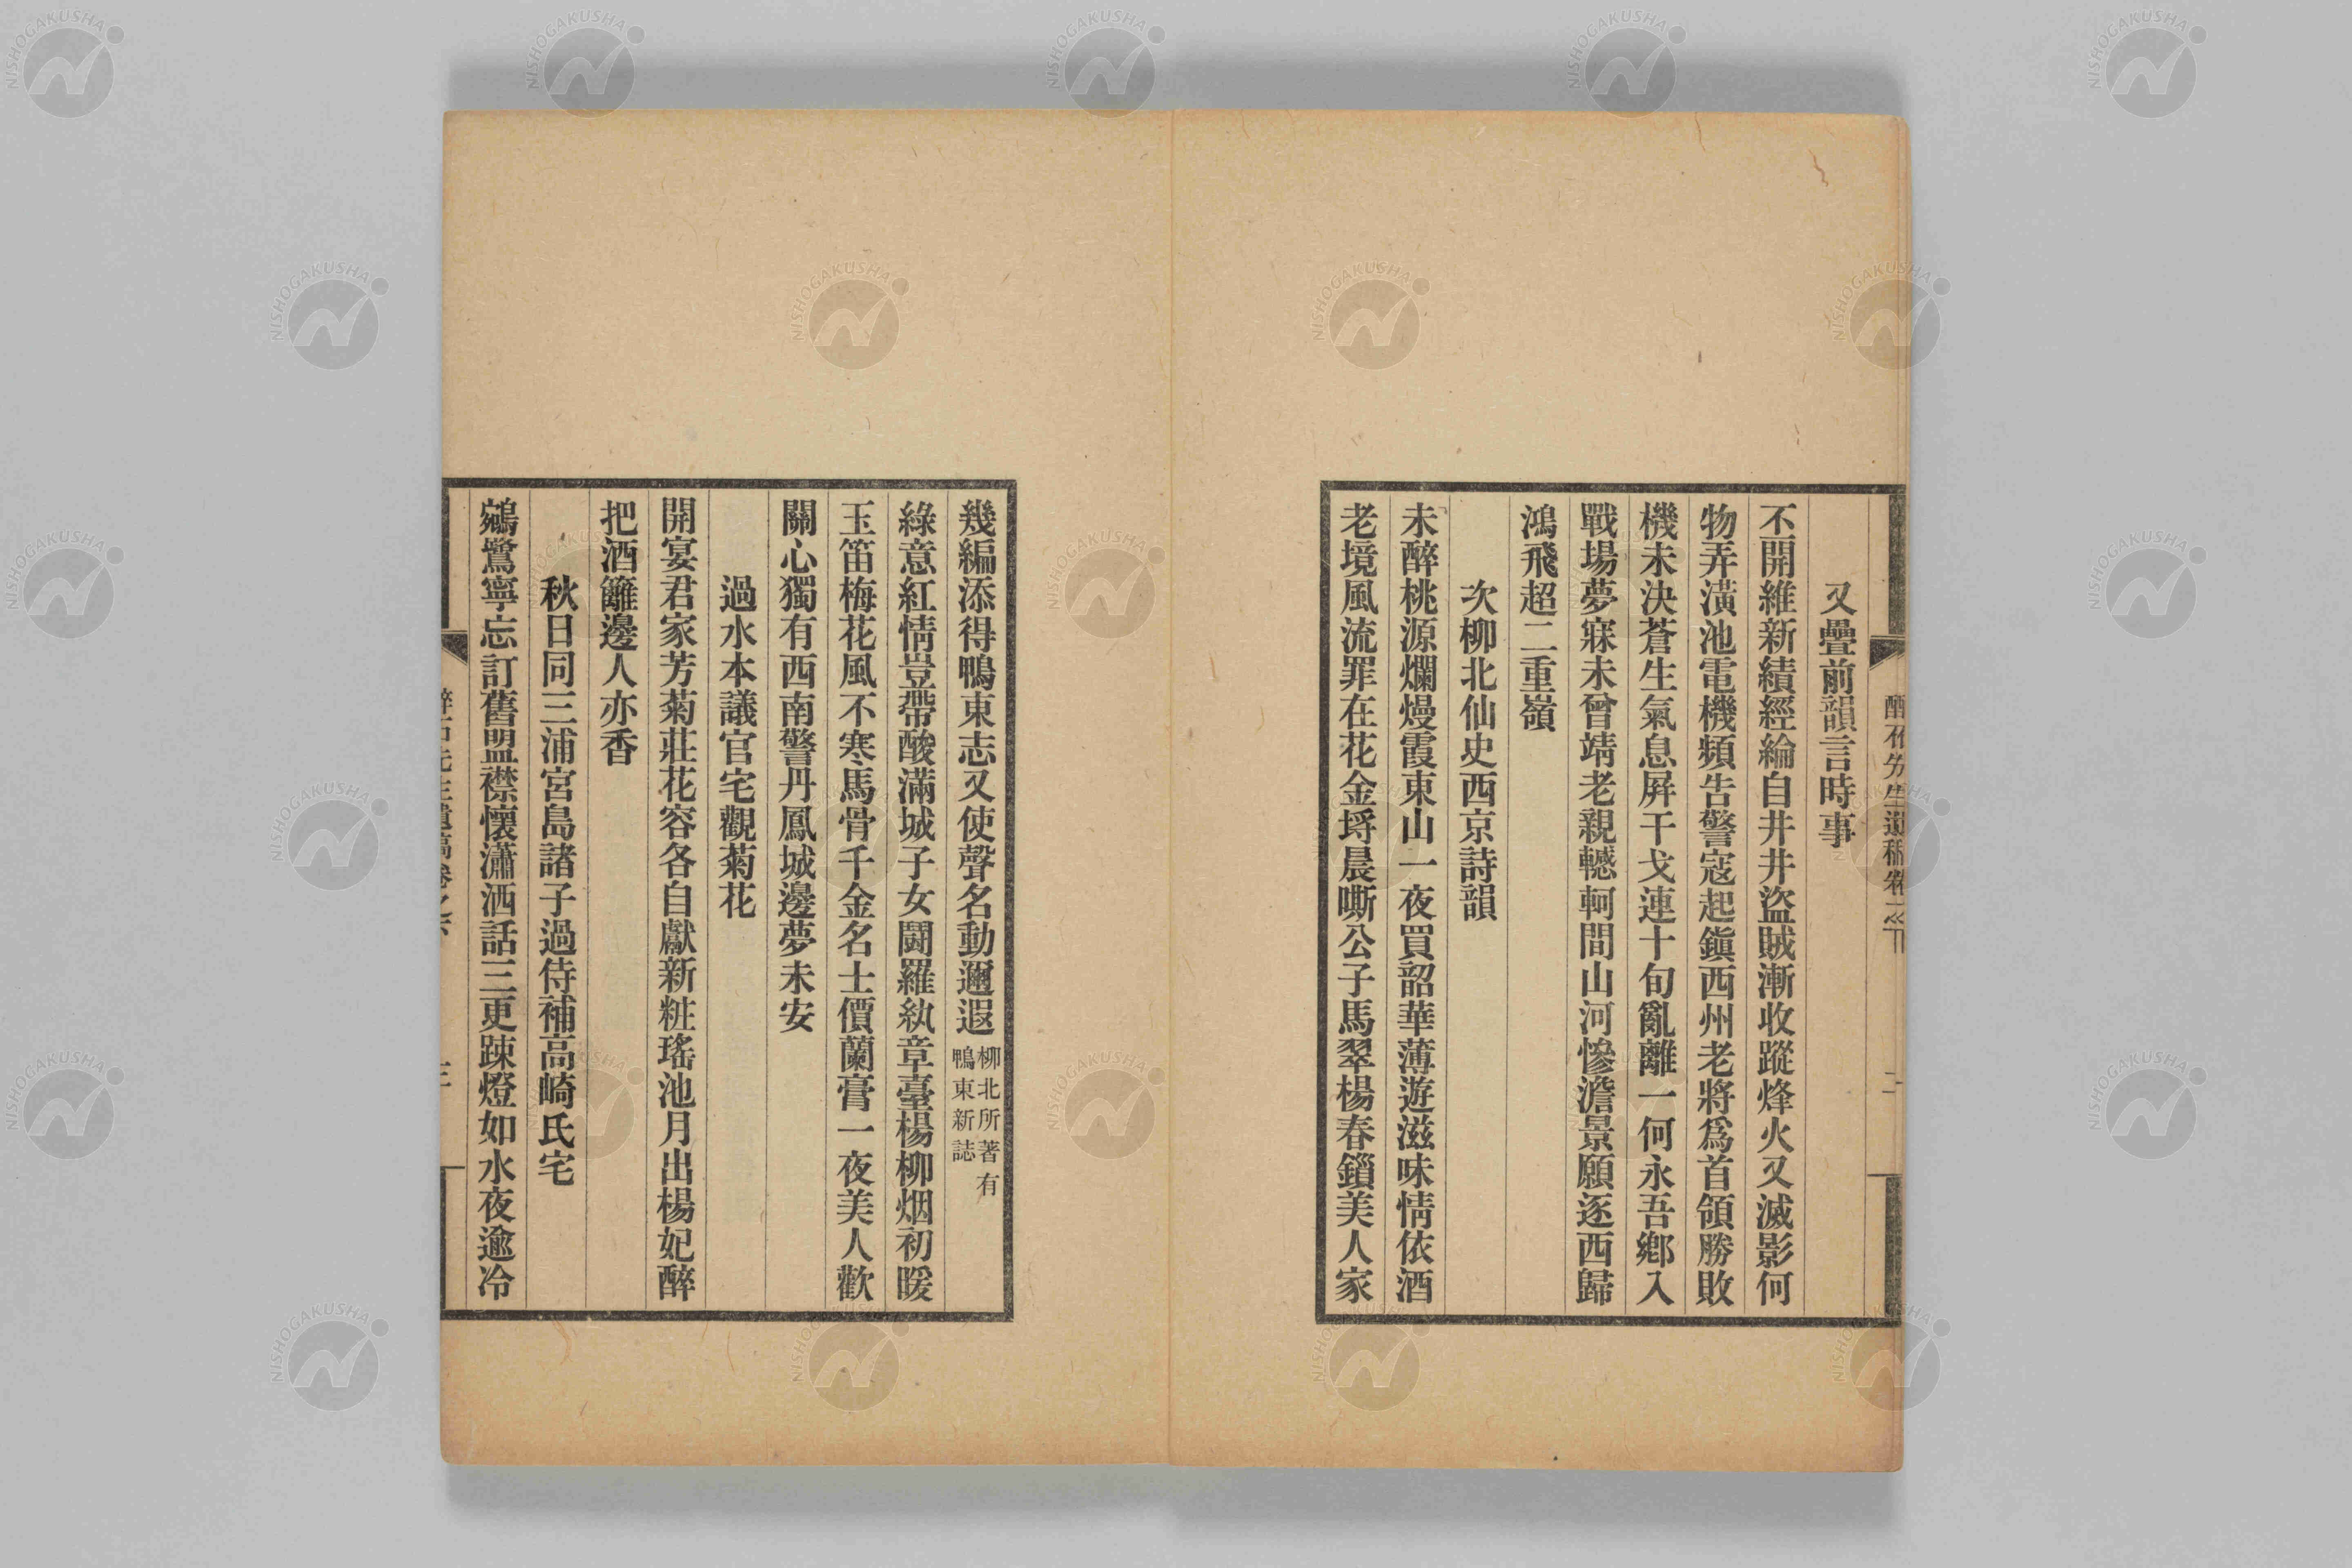 又疊前韻言時事
不開維新績經綸自井井盜賊漸收蹤烽火又滅影何
物弄潢池電機頻告警寇起鎭西州老將爲首領勝敗
機未決蒼生氣息屛干戈連十旬亂離一何永吾鄕入
戰場夢寐未曾靖老親轗軻間山河慘澹景願逐西歸
鴻飛超二重嶺
次柳北仙史西京詩韻
未醉桃源爛熳霞東山一夜買韶華薄遊滋味情依酒
老境風流罪在花金埒晨嘶公子馬翠楊春鎖美人家
幾編添得鴨東志又使聲名動邇遐
柳北所著有
鴨東新誌
綠意紅情豈帶酸滿城子女鬪羅紈章臺楊柳烟初暖
玉笛梅花風不寒馬骨千金名士價蘭膏一夜美人歡
關心獨有西南警丹鳳城邊夢未安
過水本議官宅觀菊花
開宴君家芳菊莊花容各自獻新粧瑤池月出楊妃醉
把酒籬邊人亦香
秋日同三浦宮島諸子過侍補高崎氏宅
鵷鷺寧忘訂舊盟襟懷瀟洒話三更踈燈如水夜逾冷
NISHOGAKUSHA